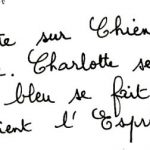 te sur Chien
. Charlotte se
bleu se fait
ient l'Espr